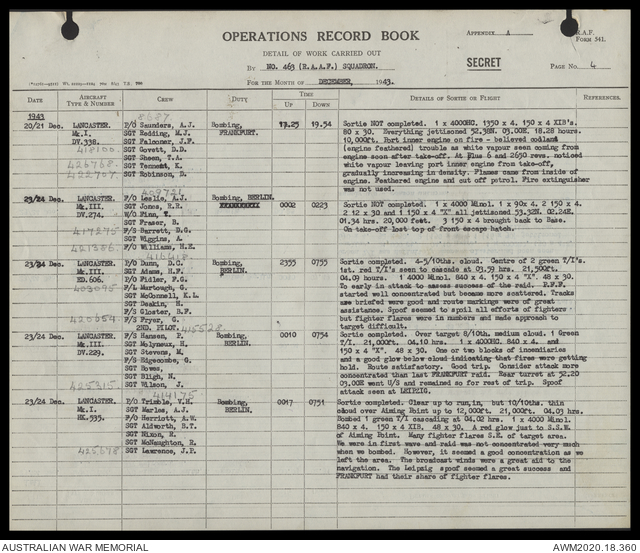 OPERATIONS RECORD BOOK
APPENDIX A
R.A.F.
FORM 541.
DETAIL OF WORK CARRIED OUT
BY NO. 463 (R.A.A.F.) SQUADRON.
SECRET
PAGE No. 4
FOR THE MONTH OF DECEMBER, 1943.
DATE AIRCRAFT TYPE & NUMBER CREW DUTY TIME UP DOWN DETAILS OF SORTIE OR FLIGHT REFERENCES.
1943
20/21 Dec. LANCASTER. F/O Saunders, A.J. Bombing, 17.25 19.54 Sortie NOT completed. 1 x 4000HC, 1350 x 4. 150 x 4 XIB's.
Mk.I. SGT Redding, M.J. FRANKFURT. 80 x 30. Everything jettisoned 52.38N. 03.00E. 18.28 hours.
DV.338. SGT Falconer, J.F. 10,000ft. Port inner engine on fire - believed coolant
418100 SGT Govett, D.D. (engine feathered) trouble as white vapour seen coming from
SGT Sheen, T.A. engine soon after take-off. At Plus 6 and 2650 revs. noticed
426768 SGT Tennent, K. white vapour leaving port inner engine from take-off,
422707 SGT Robinson, D. gradually increasing in density. Flames came from inside of
engine. Feathered engine and cut off petrol. Fire extinguisher
was not used.
409721
23/24 Dec. LANCASTER. F/O Leslie, A.J. Bombing, BERLIN. 0002 0223 Sortie NOT completed. 1 x 4000 Minol. 1 x 90x 4, 2 150 x 4,
Mk.III. SGT Jones, R.R. 2 12 x 30 and 1 150 x 4 "X" all jettisoned 53.32N. 02.24E.
DV.274. W/O Finn, T. 01.34 hrs. 20,000 feet. 3 150 x 4 brought back to Base.
SGT Fraser, B. On take-off lost top of front escape hatch.
417275 F/S Barrett, D.G.
SGT Wiggins, A.
421386 F/O Williams, H.E.
23/24 Dec. LANCASTER. P/O Dunn, D.C. Bombing, 2355 0755 Sortie completed. 4-5/10ths. cloud. Centre of 2 green T/I's
Mk.III. SGT Adams, H.F. BERLIN. 1st. red T/I's seen to cascade at 03.59 hrs. 21,500ft.
ED.606. P/O Fidler, F.G. 04.09 hours. 1 x 4000 Minol. 840 x 4. 150 x 4 "X". 48 x 30.
403095 P/L Murtough, G. To early in attack to assess success of the raid. P.F.F.
SGT McConnell, K.L. started well concentrated but became more scattered. Tracks
SGT Deakin, H. as briefed were good and route markings were of great
F/S Gloster, B.F. assistance. Spoof seemed to spoil all efforts of fighters
420654 F/S Fryer, G. but fighter flares were in numbers and made approach to
2ND. PILOT. 415528 target difficult.
23/24 Dec. LANCASTER F/S Hansen, P. Bombing, 0010 0754 Sortie completed. Over target 8/10th. medium cloud. 1 Green
Mk.III. SGT Molyneux, H. BERLIN. T/I. 21,000ft. 04.10 hrs. 1 x 4000HC, 840 x 4. and
DV.229. SGT Stevens, M. 150 x 4 "X". 48 x 30. One or two blocks of incendiaries
F/S Edgecombe, G. and a good glow below cloud indicating that fires were getting
SGT Bowes, hold. Route satisfactory. Good trip. Consider attack more
SGT Bligh, N. concentrated than last FRANKFURT raid. Rear turret at 52.20
425315 SGT Wilson, J. 03.00E went U/S and remained so for rest of trip. Spoof
attack seen at LEIPZIG.
414175
23/24 Dec. LANCASTER P/O Trimble, V.H. Bombing, 0017 0751 Sortie completed. Clear up to run in, but 10/10ths. thin
Mk.I. SGT Marles, A.J. BERLIN. cloud over Aiming Point up to 12,000ft. 21,000ft. 04.03 hrs.
HK.535. P/O Herriott, A.W. Bombed 1 green T/I cascading at 04.02 hrs. 1 x 4000 Minol.
SGT Aldworth, B.T. 840 x 4. 150 x 4 XIB. 48 x 30. A red glow just to S.S.W.
SGT Nixon, R. of Aiming Point. Many fighter flares S.E. of target area.
SGT McNaughton, R. We were in first wave and raid was not concentrated very much
425678 SGT Lawrence, J.P. when we bombed. However, it seemed a good concentration as we
left the area. The broadcast winds were a great aid to the
navigation. The Leipzig spoof seemed a great success and
FRANKFURT had their share of fighter flares.
AUSTRALIAN WAR MEMORIAL
AWM2020.18.360